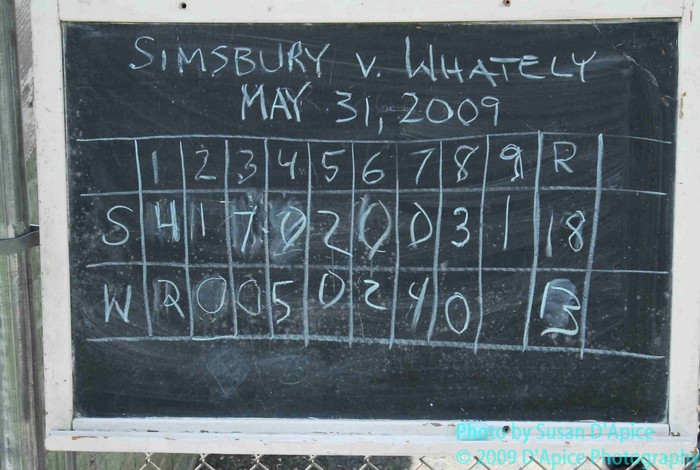 SIMSBURY V. WHATELY
MAY 31, 2009
1 2 3 4 5 6 7 8 9 R
S 4 1 7 0 2 0 0 3 1 18
W R 0 0 5 0 2 4 0 13
Photo by Susan D'Apice
© 2009 D'Apice Photography